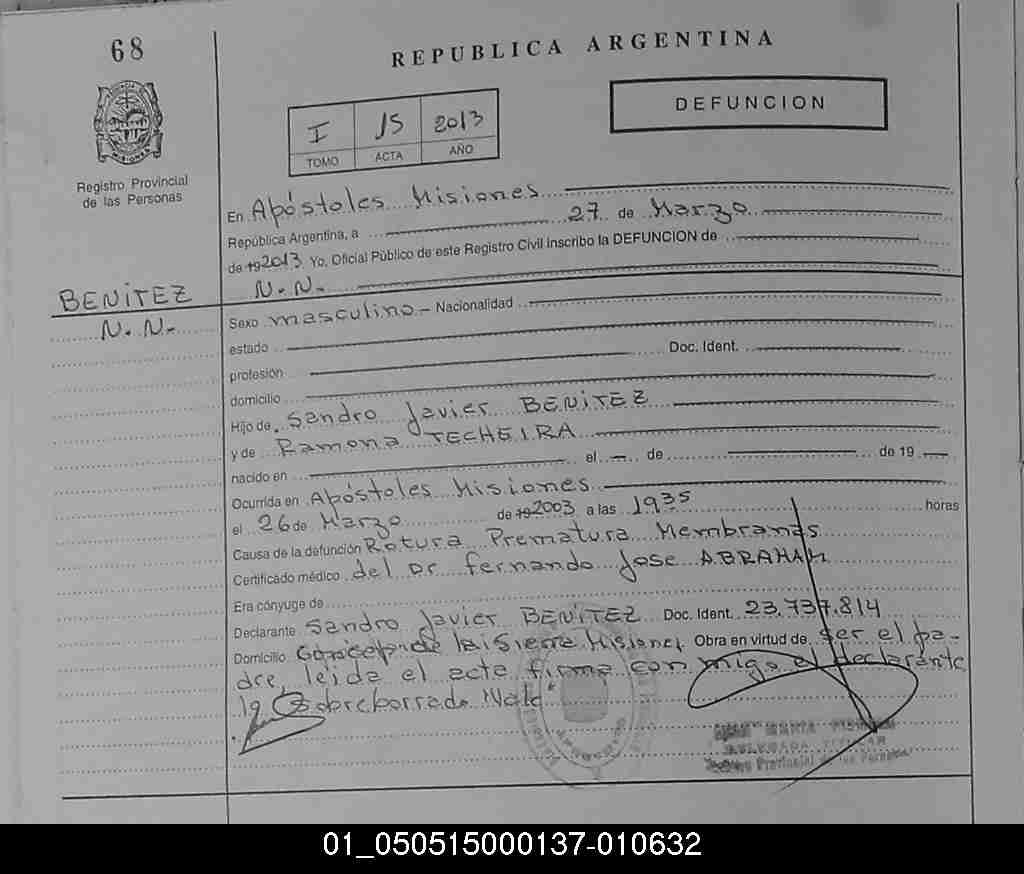 68
REPUBLICA ARGENTINA
DEFUNCION
I 15 2013
TOMO ACTA AÑO
Registro Provincial
de las Personas
En Apóstoles Misiones
República Argentina, a 27 de Marzo
de 19 2013 Yo, Oficial Público de este Registro Civil inscribo la DEFUNCION de
BENITEZ N. N.
N. N.
Sexo masculino Nacionalidad
estado
Doc. Ident.
profesión
domicilio
Hijo de Sandro Javier BENITEZ
y de Ramona TECHEIRA
nacido en el de de 19
Ocurrida en Apóstoles Misiones
el 26 de Marzo de 19 2003 a las 1935 horas
Causa de la defunción Rotura Prematura Membranas
Certificado médico del Dr Fernando Jose ABRAHAM
Era cónyuge de
Declarante Sandro Javier BENITEZ Doc. Ident. 23.737.814
Domicilio de la Sierra Misiones Obra en virtud de ser el pa-
dre, leida el acta firma con migo el declarante
Sobreborrado Vale
Registro Provincial de las Personas
01_050515000137-010632